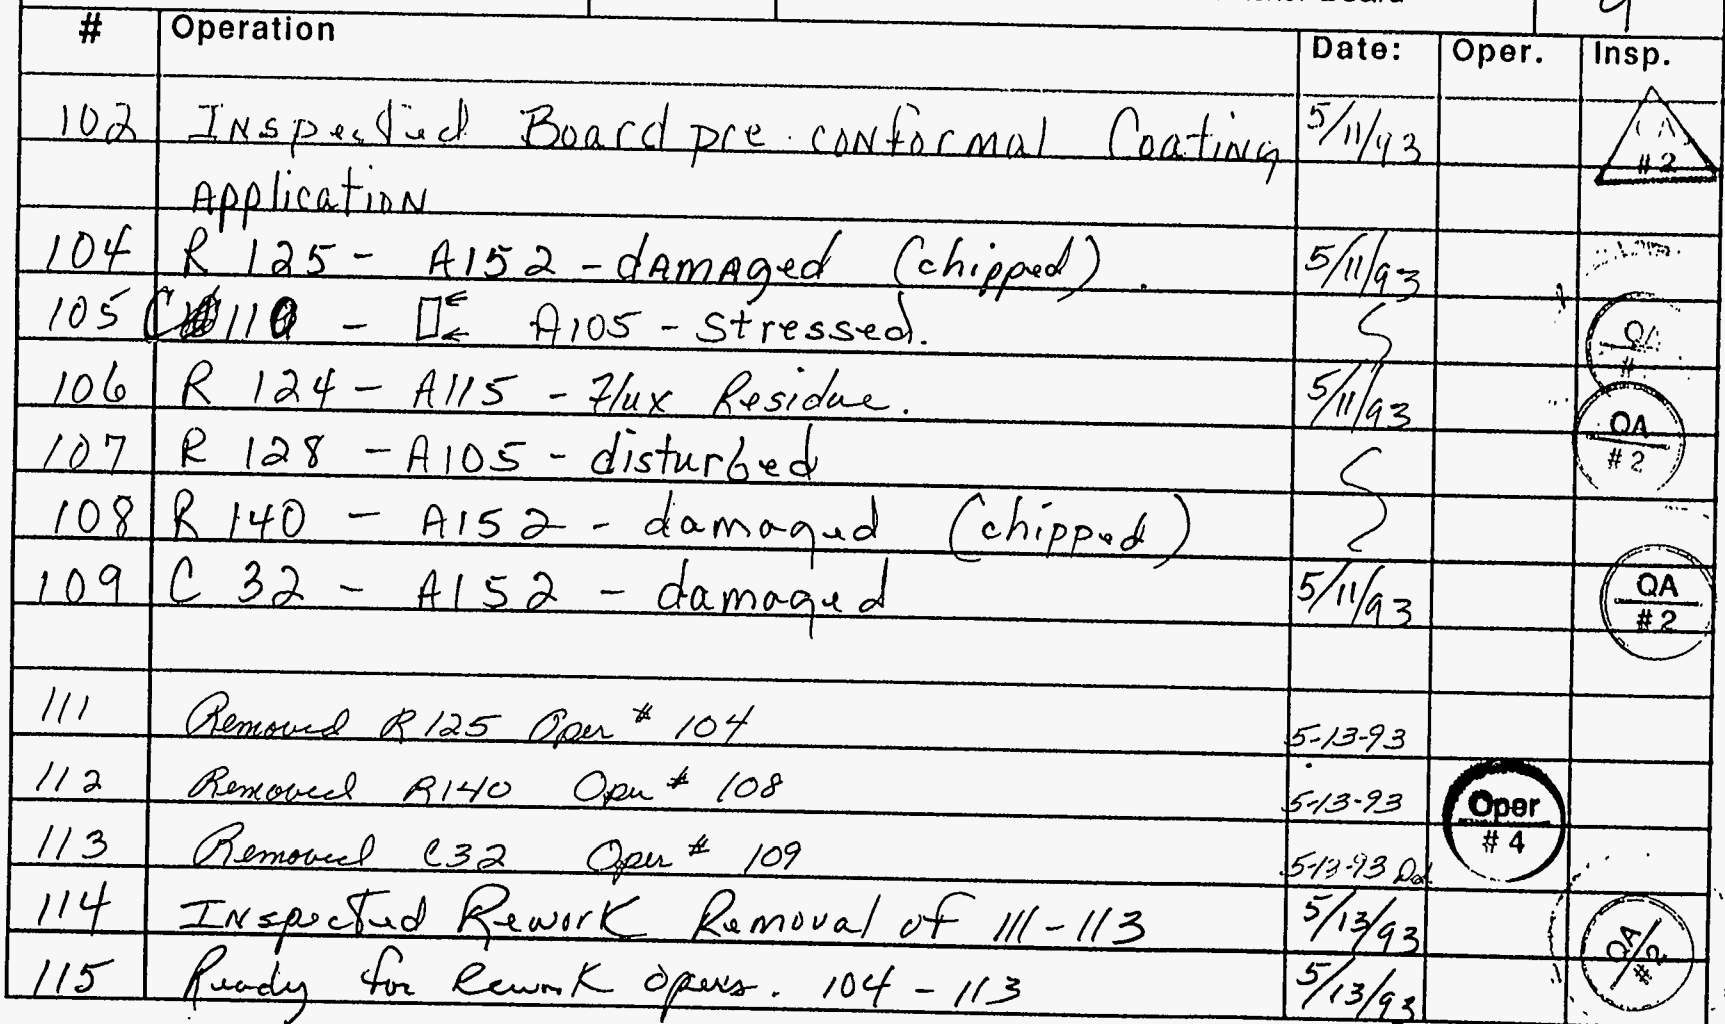 Board 9
# Operation Date: Oper. Insp.
102 Inspected Board pre-conformal Coating 5/11/93
#2
Application
104 R 125 - A152 - damaged (chipped). 5/11/93
105 C 110 - A105 - Stressed.
106 R 124 - A115 - Flux Residue. 5/11/93 QA #2
107 R 128 - A105 - disturbed
108 R 140 - A152 - damaged (chipped)
109 C 32 - A152 - damaged 5/11/93 QA #2
111 Removed R125 Oper # 104 5-13-93
112 Removed R140 Oper # 108 5-13-93 Oper #4
113 Removed C32 Oper # 109 5-13-93
114 Inspected Rework Removal of 111-113 5/13/93 QA/#2
115 Ready for Rework opers. 104-113 5/13/93